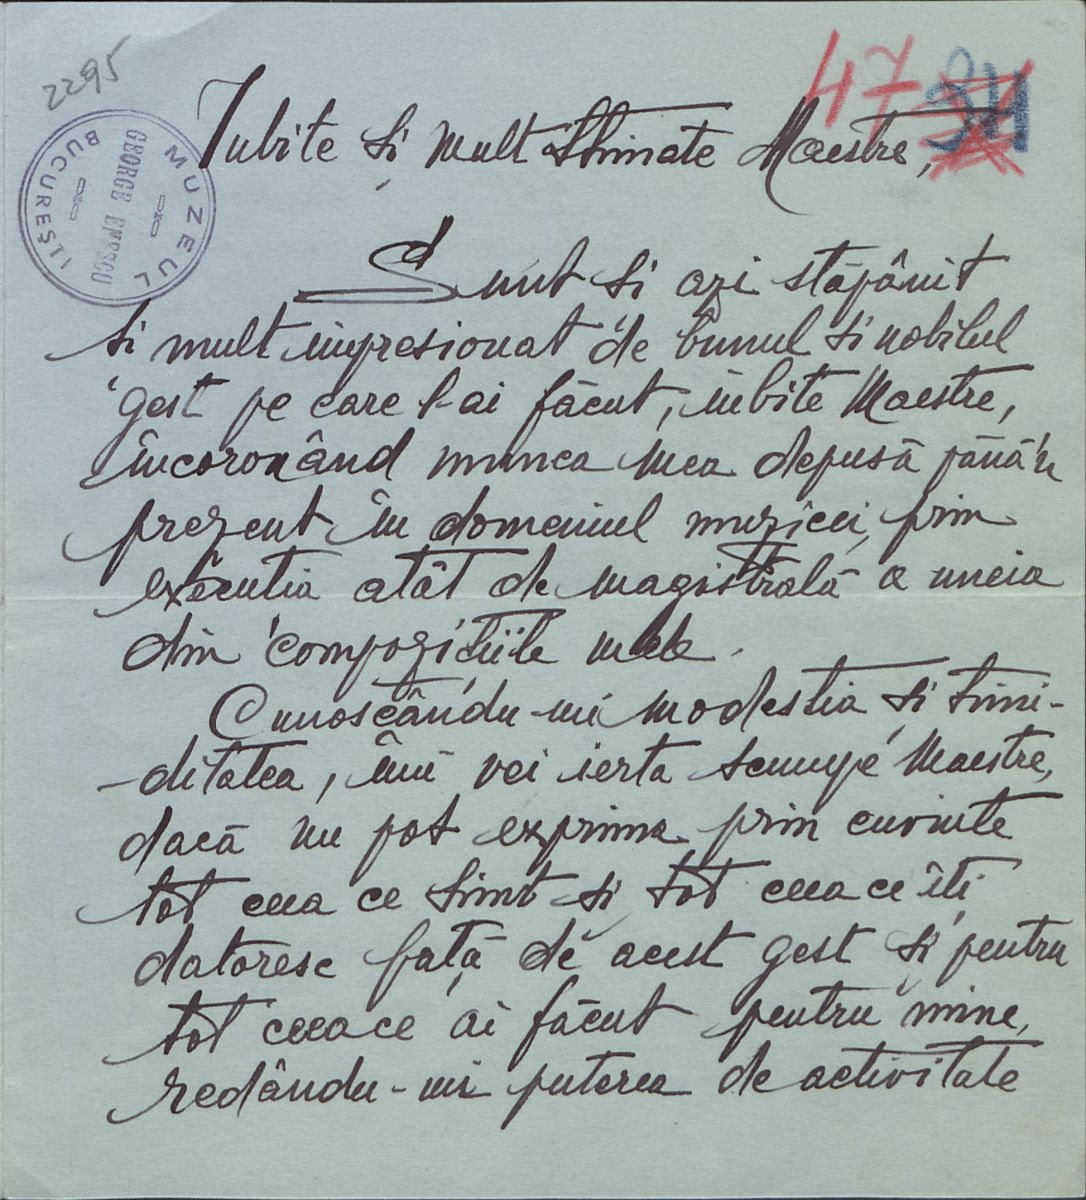 2295
47 34
MUZEUL
GEORGE ENESCU
BUCUREȘTI
Iubite și mult stimate Maestre,
Sunt și azi stăpânit
și mult impresionat de bunul și nobilul
gest pe care l-ai făcut, iubite Maestre,
încoronând munca mea depusă până'n
prezent în domeniul muzicei, prin
execuția atât de magistrală a uneia
din compozițiile mele.
Cunoscându-mi modestia și timi-
-ditatea, îmi vei ierta scumpe Maestre,
dacă nu pot exprima prin cuvinte
tot ceea ce simt și tot ceea ce îți
datoresc față de acest gest și pentru
tot ceeace ai făcut pentru mine,
redându-mi puterea de activitate